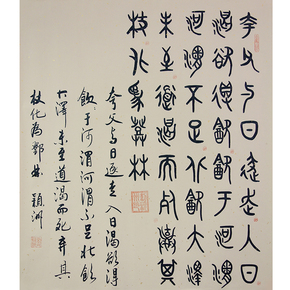 夸父与日逐走入日
渴欲得飲飲于河渭
河渭不足北飲大澤
未至道渴而死棄其
杖化為鄧林
夸父与日逐走入日渴欲得
飲飲于河渭河渭不足北飲
大澤未至道渴而死弃其
杖化為鄧林 穎洲